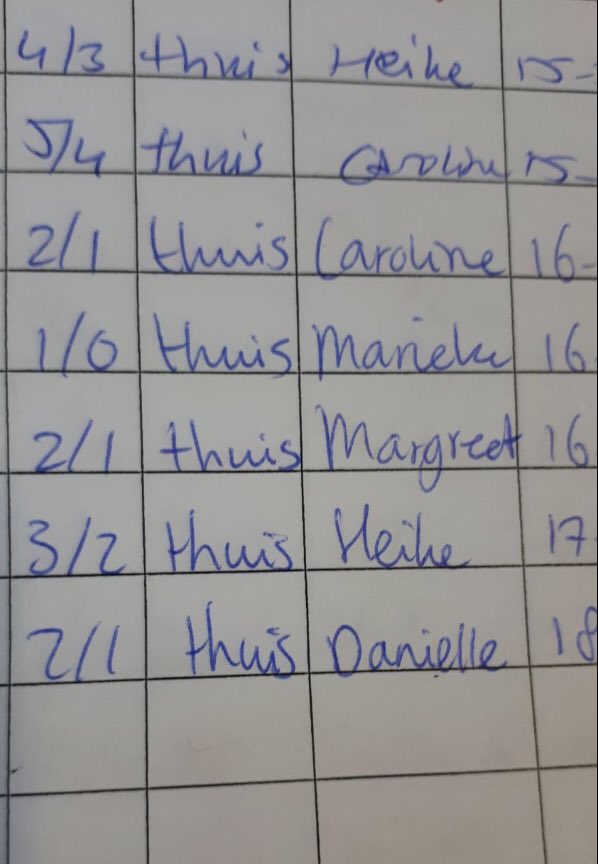 4/3 thuis Heike 15-
5/4 thuis Caroline 15-
2/1 thuis Caroline 16-
1/0 thuis Marieke 16
2/1 thuis Margreet 16
3/2 thuis Heike 17
2/1 thuis Danielle 18